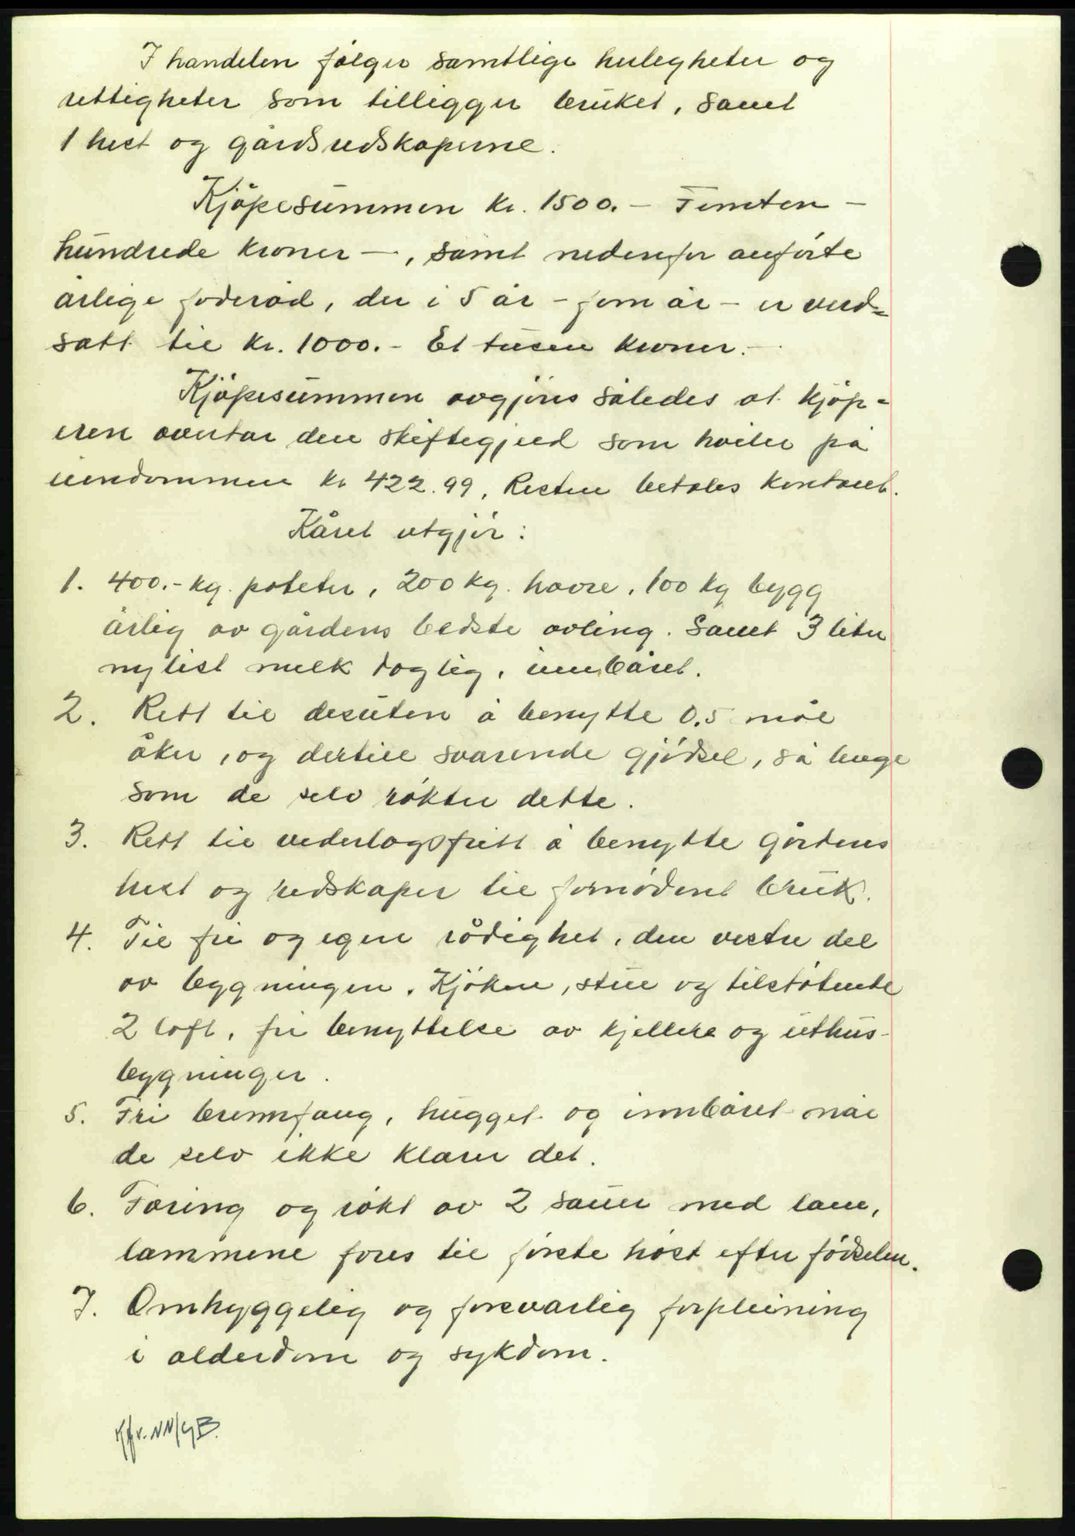 I handelen følger samtlige herligheter og
rettigheter som tilligger bruket, samt
1 hest og gårdsredskapene.
Kjøpesummen kr. 1500.- Femten-
hundrede kroner -, samt nedenfor anførte
årlige foderåd, der i 5 år - fem år - er verd=
satt til kr. 1000.- Et tusen kroner.-
Kjøpesummen avgjøres således at kjøp=
eren overtar den skiftegjeld som hviler på
eiendommen kr 422.99, Resten betales kontant.
Kåret utgjør:
1. 400.- kg. poteter, 200 kg. havre, 100 kg bygg
årlig av gårdens bedste avling. Samt 3 liter
nysilt melk daglig, innbåret.
2. Rett til desuten å benytte 0,5 mål
åker, og dertil svarende gjødsel, så lenge
som de selv røkter dette.
3. Rett til vederlagsfritt å benytte gårdens
hest og redskaper til fornødent bruk.
4. Til fri og egen rådighet, den vestre del
av bygningen. Kjøken, stue og tilstøtende
2 loft, fri benyttelse av kjellere og uthus-
bygninger.
5. Fri brennfang, hugget og innbåret når
de selv ikke klarer det.
6. Foring og røkt av 2 sauer med lam,
lammene fores til første høst efter fødselen.
7. Omhyggelig og forsvarlig forpleining
i alderdom og sykdom.
Kfr. NN/GB.